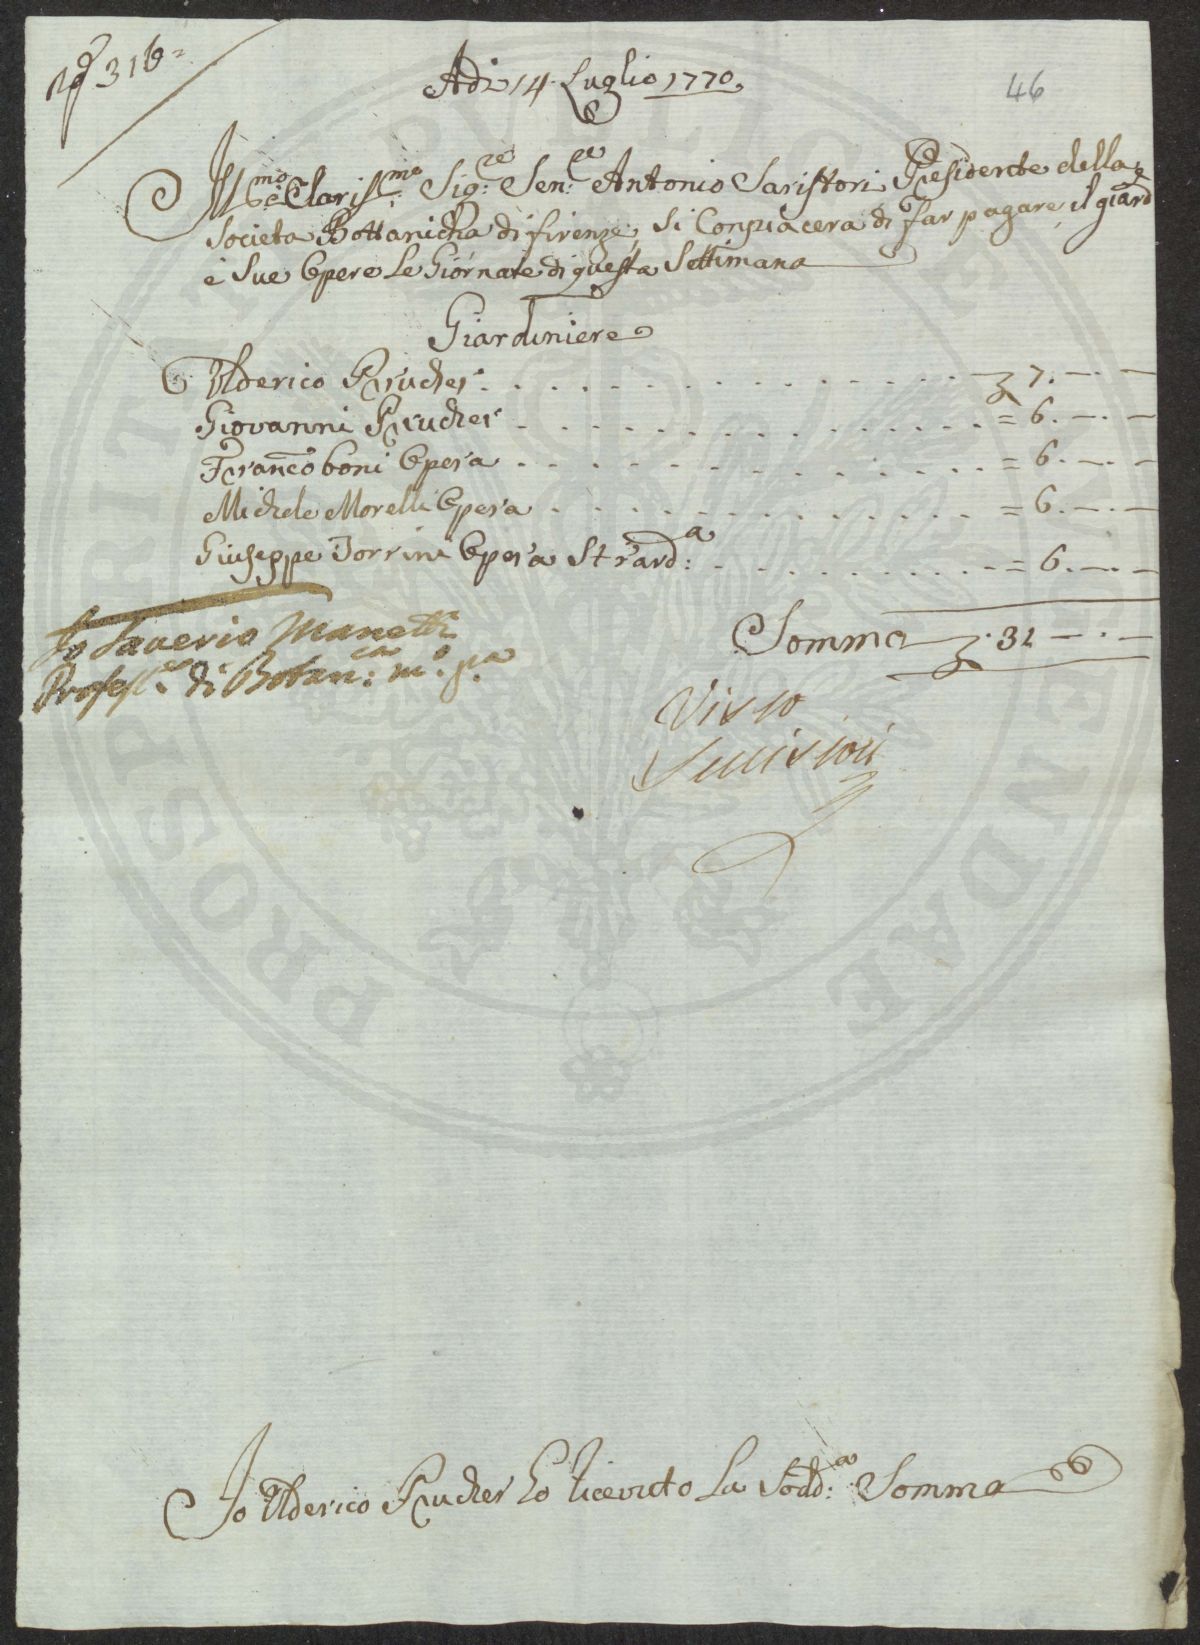 316
Adi 14. Luglio 1770.
46
Ill.mo e Clariss.mo Sig:re Sen:re Antonio Saristori Presidente della
Societa Bottanicha di firenze, Si Conpiacera di far pagare, il giard
e Sue Opere Le Giornate di questa Settimana
Giardiniere
Ulderico Prucher . . . 7. — . —
Giovanni Prucher . . . = 6. — . —
Franco boni Opera . . . = 6. — . —
Michele Morelli Opera . . . = 6. — . —
Giuseppe Torrini Opera Strard:a . . . = 6. — . —
Somma 31 — . —
Io Saverio Manetti
Profess.re di Botan:ca m.o p.a
Visto
Io Ulderico Prucher ho ricevuto La Sodd:a Somma
PROSPERITATI PUBLICAE AUGENDAE